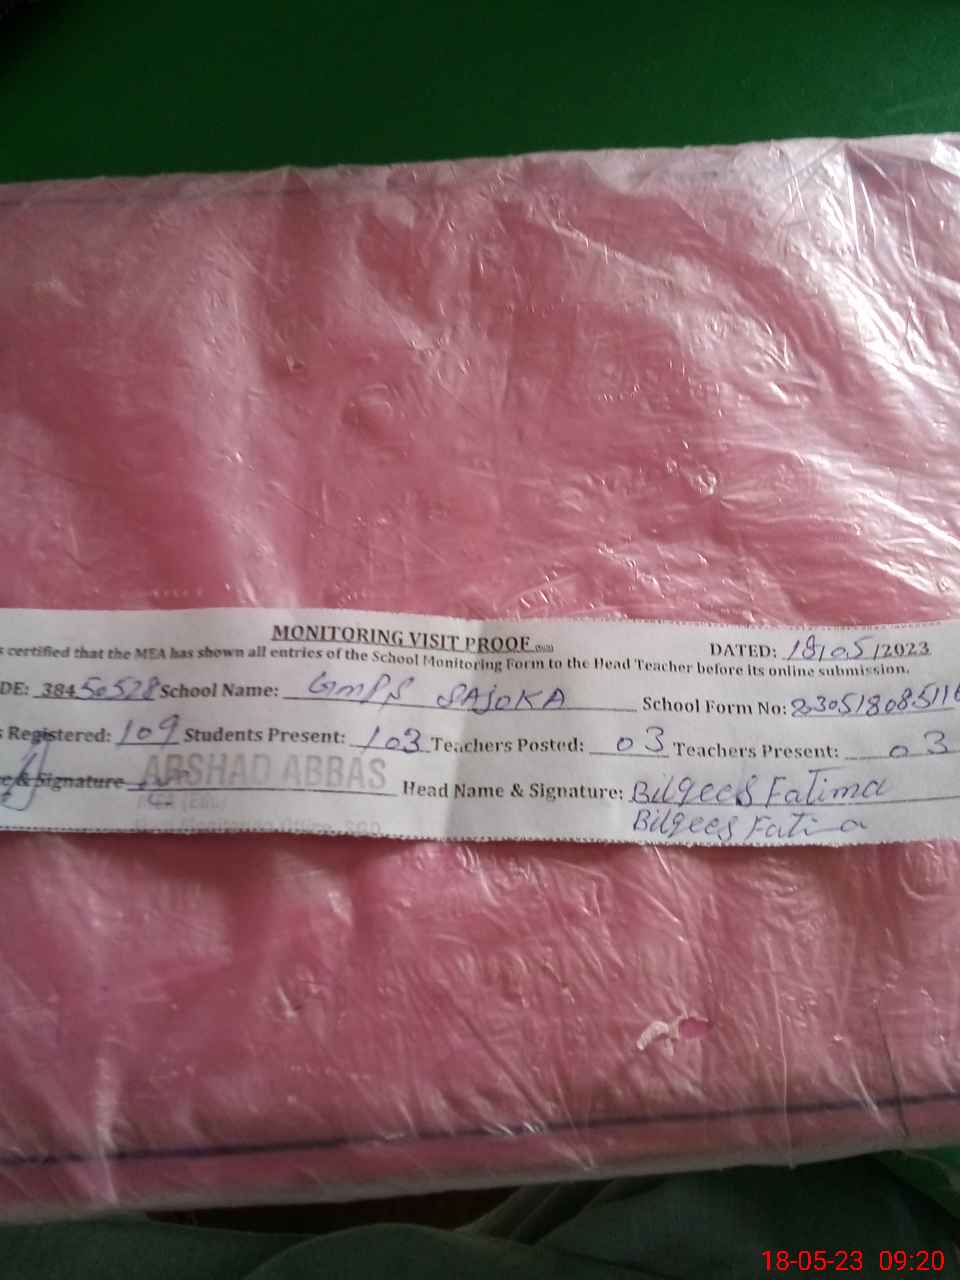 MONITORING VISIT PROOF
DATED: 18/05/2023
s certified that the MEA has shown all entries of the School Monitoring Form to the Head Teacher before its online submission.
DE: 38450528 School Name: GMPS SAJOKA School Form No: 2305180851
s Registered: 109 Students Present: 103 Teachers Posted: 03 Teachers Present: 03
e & Signature ARSHAD ABBAS Head Name & Signature: Bilqees Fatima
Bilqees Fatima
18-05-23 09:20